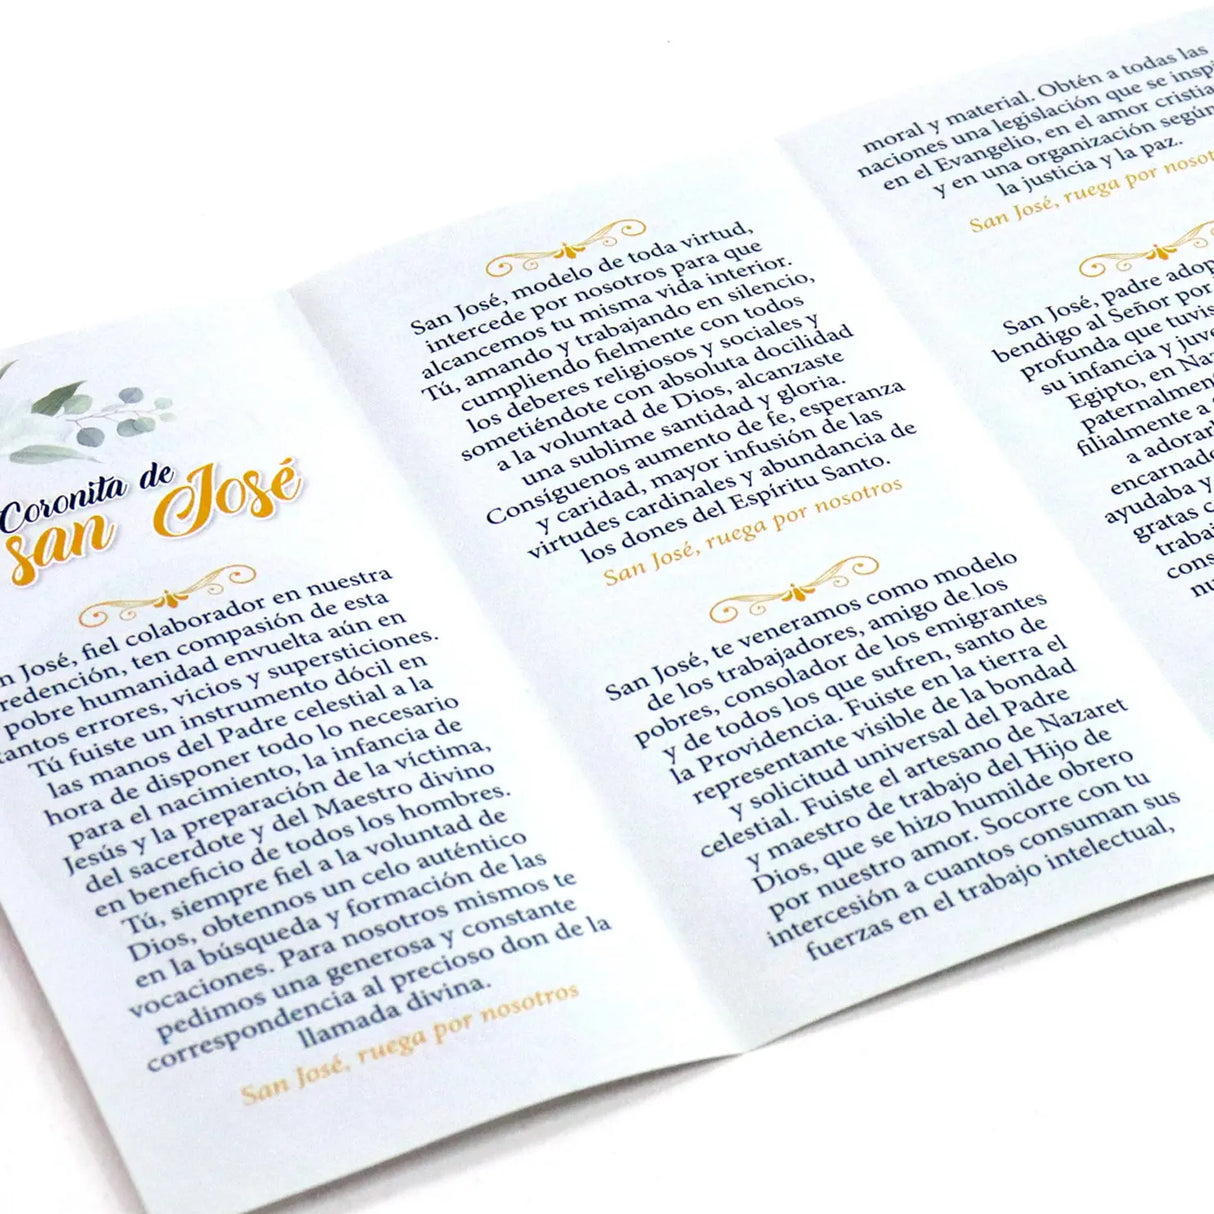 Coronita de
san José
José, fiel colaborador en nuestra
redención, ten compasión de esta
pobre humanidad envuelta aún en
tantos errores, vicios y supersticiones.
Tú fuiste un instrumento dócil en
las manos del Padre celestial a la
hora de disponer todo lo necesario
para el nacimiento, la infancia de
Jesús y la preparación de la víctima,
del sacerdote y del Maestro divino
en beneficio de todos los hombres.
Tú, siempre fiel a la voluntad de
Dios, obtennos un celo auténtico
en la búsqueda y formación de las
vocaciones. Para nosotros mismos te
pedimos una generosa y constante
correspondencia al precioso don de la
llamada divina.
San José, ruega por nosotros
San José, modelo de toda virtud,
intercede por nosotros para que
alcancemos tu misma vida interior.
Tú, amando y trabajando en silencio,
cumpliendo fielmente con todos
los deberes religiosos y sociales y
sometiéndote con absoluta docilidad
a la voluntad de Dios, alcanzaste
una sublime santidad y gloria.
Consíguenos aumento de fe, esperanza
y caridad, mayor infusión de las
virtudes cardinales y abundancia de
los dones del Espíritu Santo.
San José, ruega por nosotros
San José, te veneramos como modelo
de los trabajadores, amigo de los
pobres, consolador de los emigrantes
y de todos los que sufren, santo de
la Providencia. Fuiste en la tierra el
representante visible de la bondad
y solicitud universal del Padre
celestial. Fuiste el artesano de Nazaret
y maestro de trabajo del Hijo de
Dios, que se hizo humilde obrero
por nuestro amor. Socorre con tu
intercesión a cuantos consuman sus
fuerzas en el trabajo intelectual,
moral y material. Obtén a todas las
naciones una legislación que se inspi
en el Evangelio, en el amor cristia
y en una organización según
la justicia y la paz.
San José, ruega por nosot
San José, padre adop
bendigo al Señor por
profunda que tuvis
su infancia y juve
Egipto, en Naz
paternalmen
filialmente a
a adorar
encarnad
ayudaba y
gratas c
traba
cons
nu